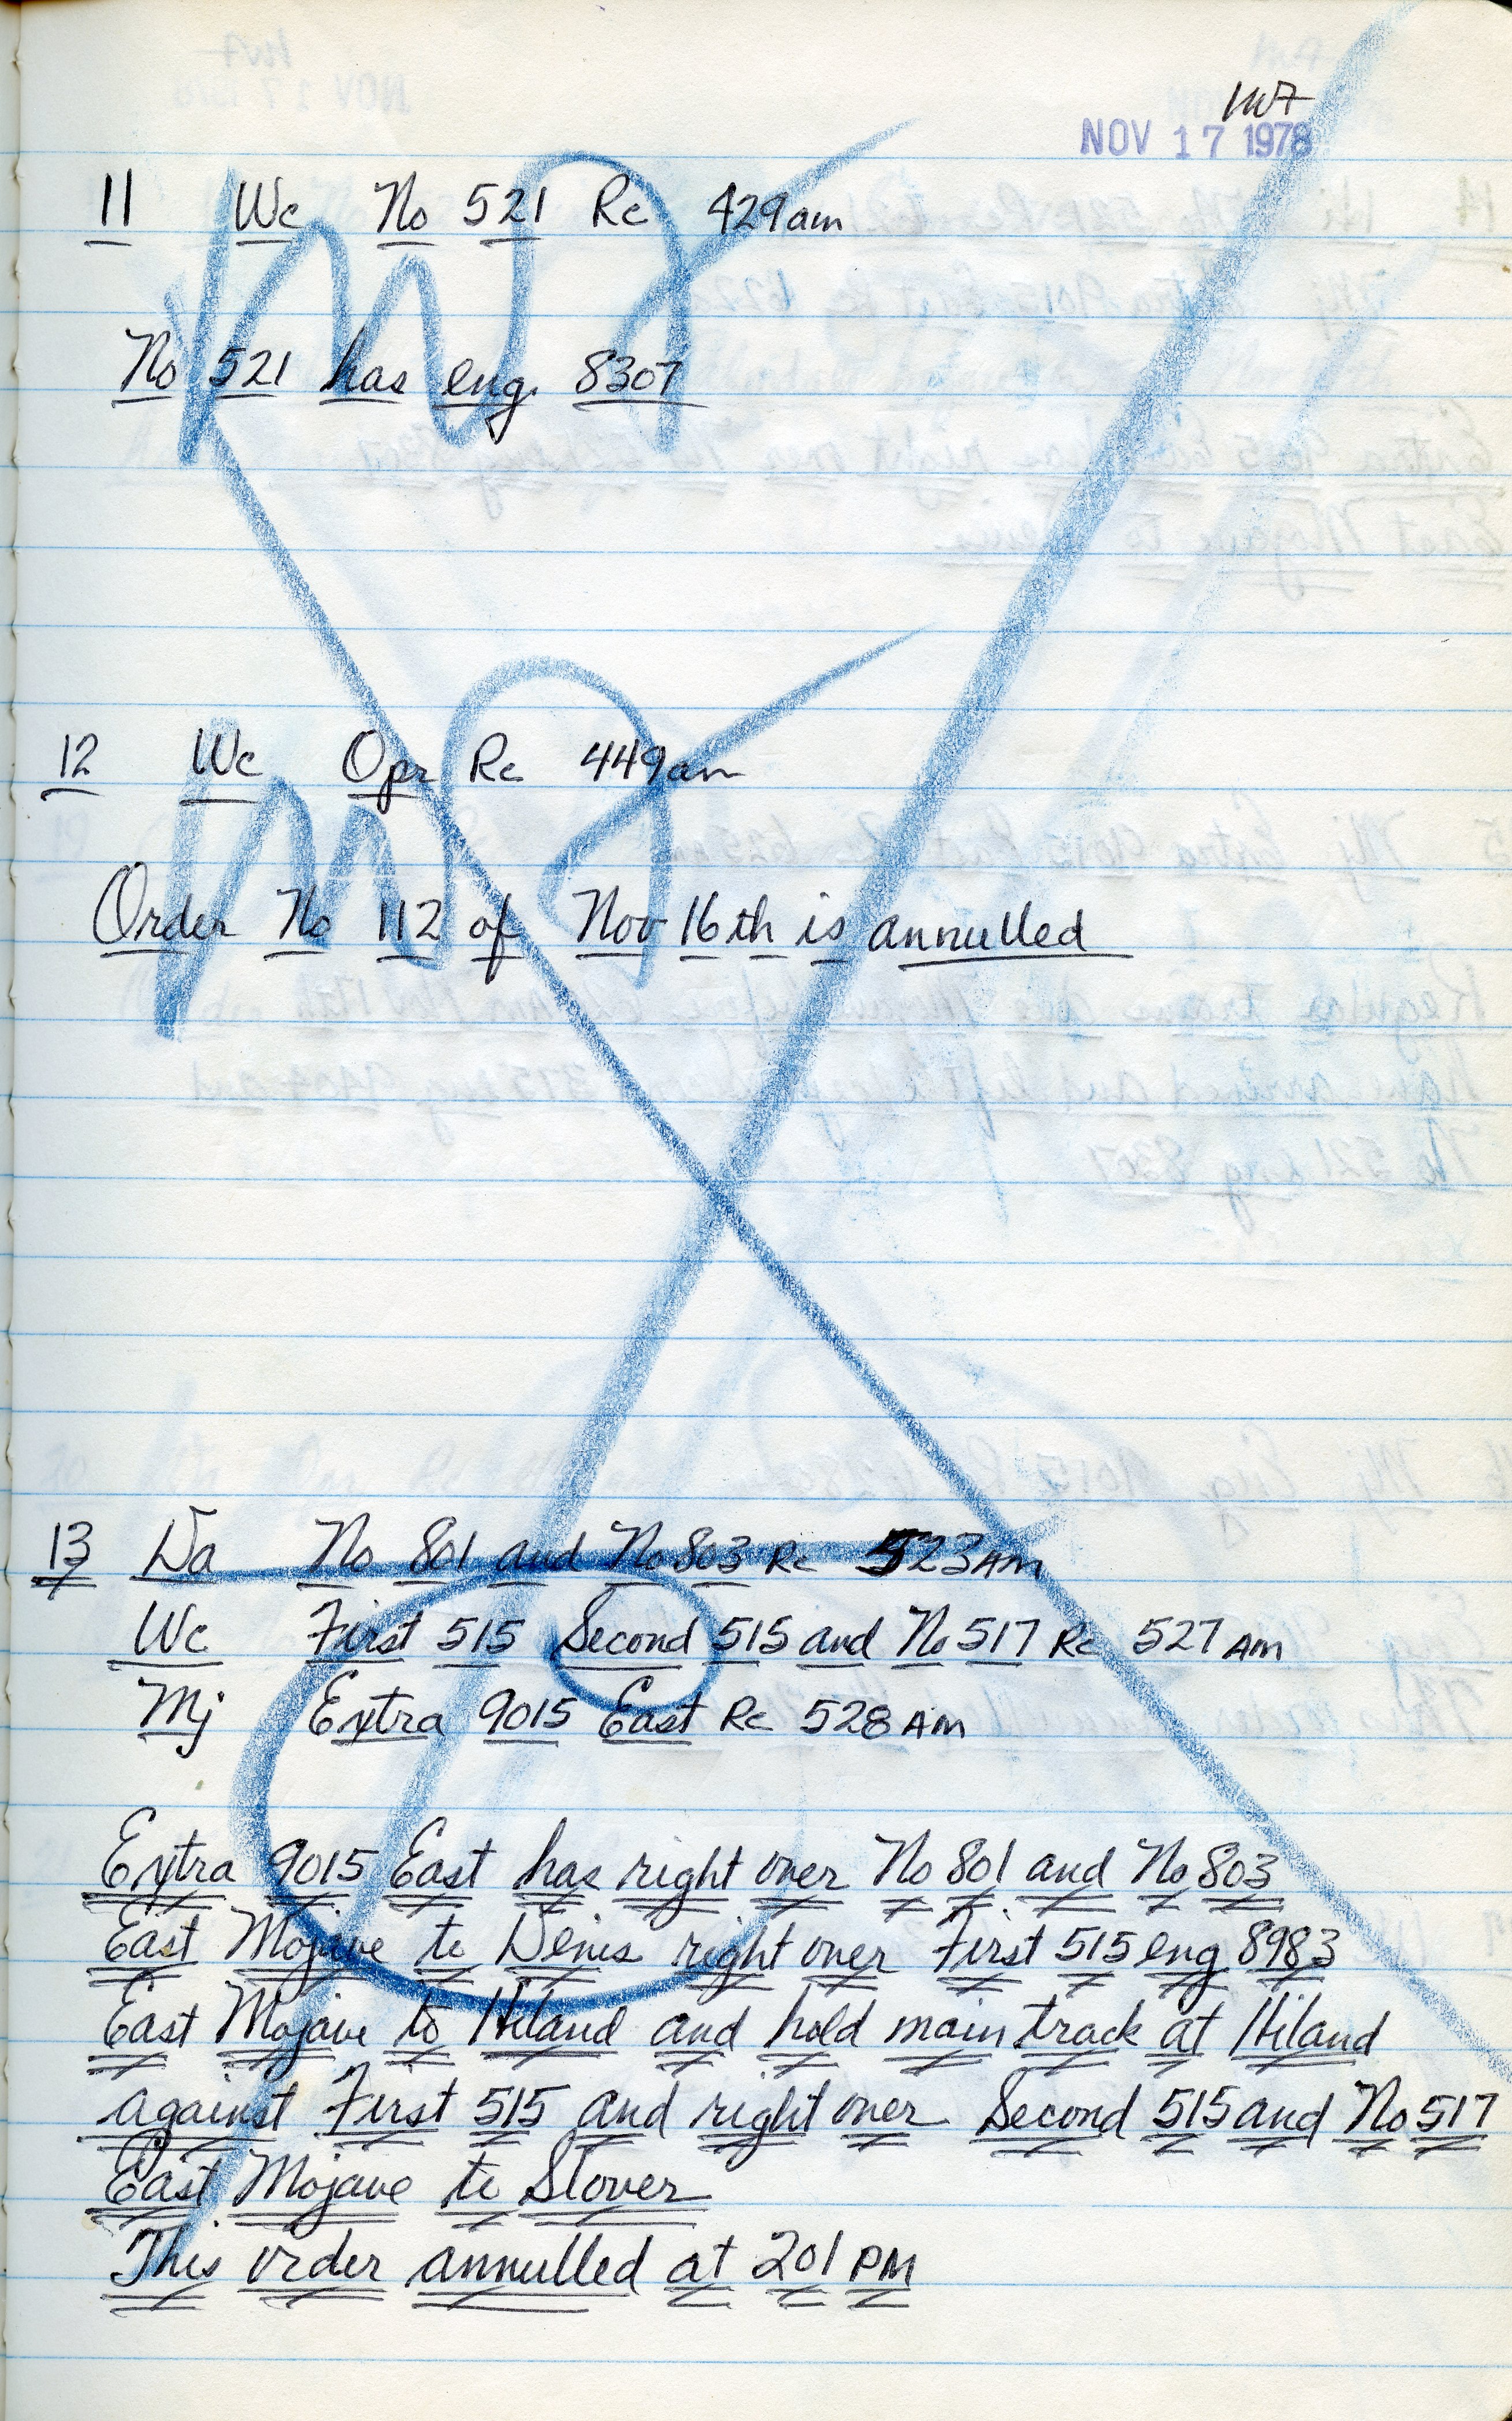 NOV 17 1978
11 Wc No 521 Rc 429am
No 521 has eng. 8307
12 Wc Opr Rc 449am
Order No 112 of Nov 16th is annulled
13 Da No 801 and No 803 Rc 523AM
Wc First 515 Second 515 and No 517 Rc 527 AM
Mj Extra 9015 East Rc 528 AM
Extra 9015 East has right over No 801 and No 803
East Mojave to Denis right over First 515 eng 8983
East Mojave to Hiland and hold main track at Hiland
against First 515 and right over Second 515 and No 517
East Mojave to Slover
This order annulled at 201 PM